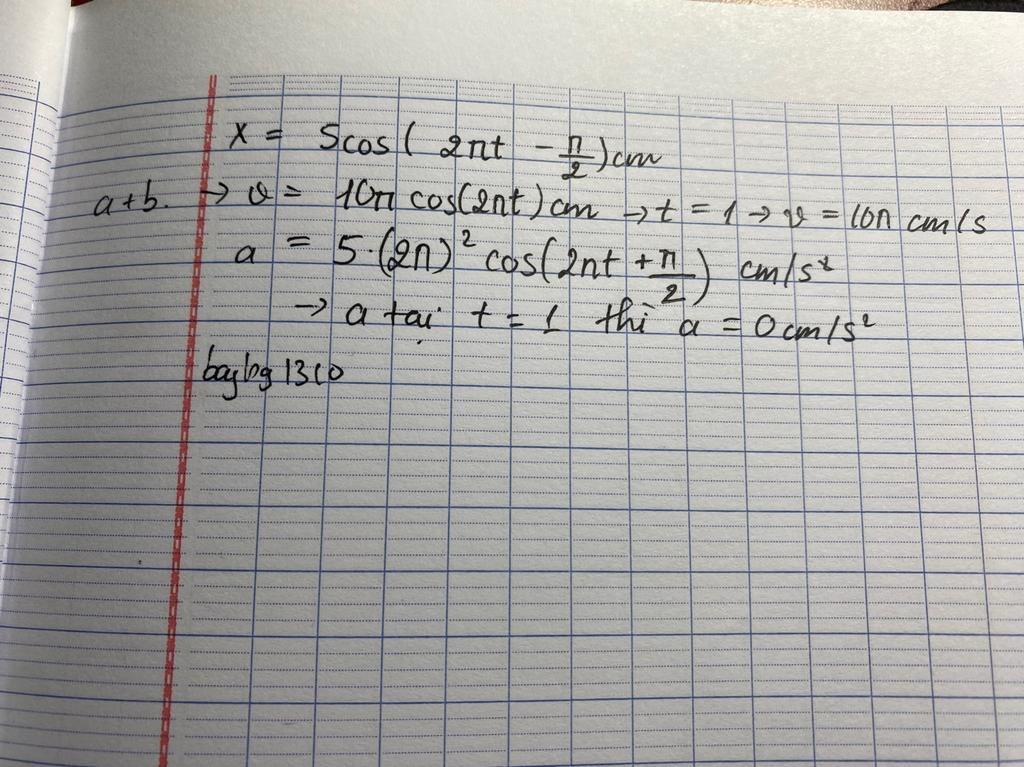 x = 5cos( 2πt - π/2 ) cm
a+b. → v = 10π cos(2πt) cm → t = 1 → v = 10π cm/s
a = 5.(2π)² cos(2πt + π/2) cm/s²
→ a tại t = 1 thì a = 0 cm/s²
baylog1310